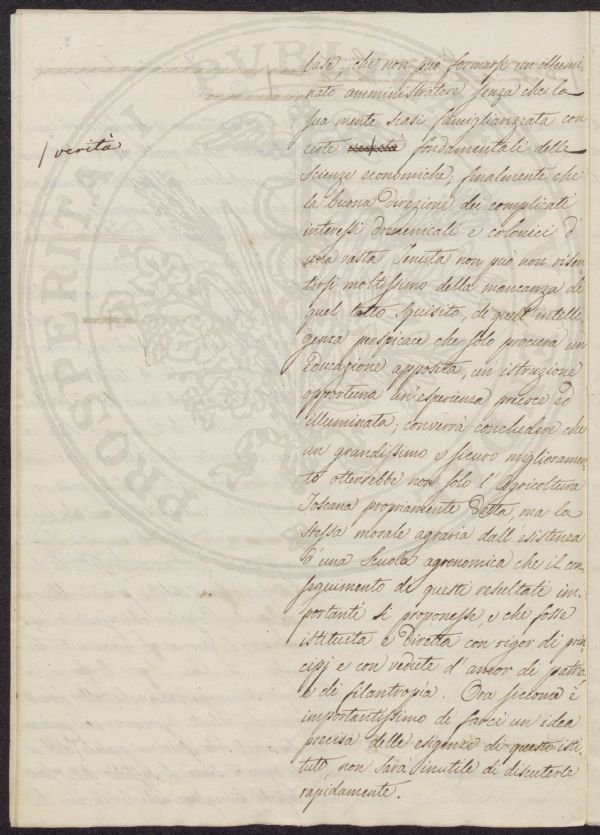 base, che non può formarsi un illumi-
nato amministratore senza che la
sua mente siasi famigliarizzata con
/ verità
certe fondamentali delle
Scienze economiche; finalmente che
la buona direzione dei complicati
interessi domenicali e colonici d'
una vasta Tenuta non può non risen-
tirsi moltissimo della mancanza di
quel tatto squisito, di quell'intelli-
genza perspicace che solo procura un
educazione apposita, un istruzione
opportuna un'esperienza precoce ed
illuminata; converrà concludere che
un grandissimo e sicuro migliorame-
nto otterrebbe non solo l'Agricoltura
Toscana propriamente detta, ma la
stessa morale agraria dall'esistenza
d'una Scuola agronomica che il con-
seguimento di questi resultati im-
portanti si proponesse, e che fosse
istituita e diretta con rigor di prin-
cipj e con vedute d'amor di patria,
e di filantropia. Ora siccome è
importantissimo di farci un idea
precisa delle esigenze di questo isti-
tuto, non sarà inutile di discuterle
rapidamente.
PROSPERITATI PUBLICAE